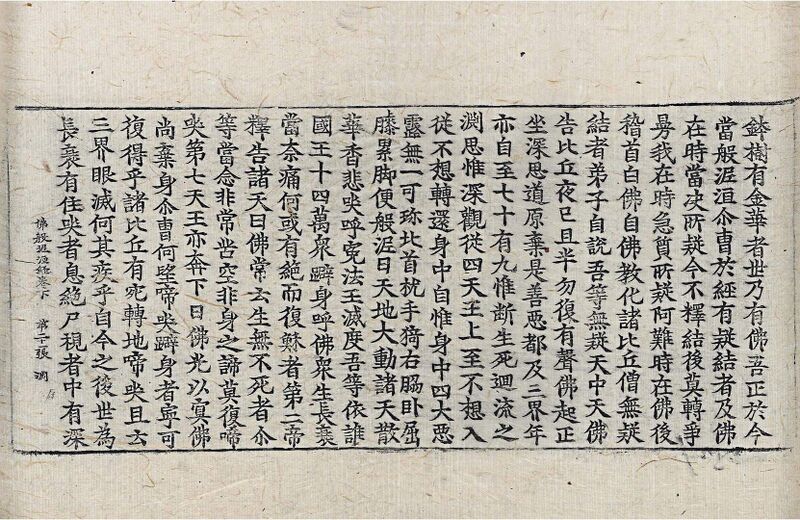 鉢樹有金華者世乃有佛吾正於今
當般泥洹尒曹於經有疑結者及佛
在時當决所疑今不釋結後莫轉爭
曼我在時急質所疑阿難時在佛後
稽首白佛自佛教化諸比丘僧無疑
結者弟子自說吾等無疑天中天佛
告比丘夜已且半勿復有聲佛起正
坐深思道原棄是善惡都及三界年
亦自至七十有九惟斷生死迴流之
淵思惟深觀從四天王上至不想入
從不想轉還身中自惟身中四大惡
露無一可珎北首枕手猗右脇卧屈
膝累脚便般泥曰天地大動諸天散
華香悲哭呼寃法王滅度吾等依誰
國王十四萬衆躃身呼佛衆生長衰
當柰痛何或有絶而復穌者第二帝
釋告諸天曰佛常云生無不死者尒
等當念非常苦空非身之諦莫復啼
哭第七天王亦來下曰佛光以㝠佛
尚棄身尒曹何望啼哭躃身者寧可
復得乎諸比丘有宛轉地啼哭且云
三界眼滅何其疾乎自今之後世為
長衰有住哭者息絶尸視者中有深
佛般泥洹經卷下 第二十張 淵